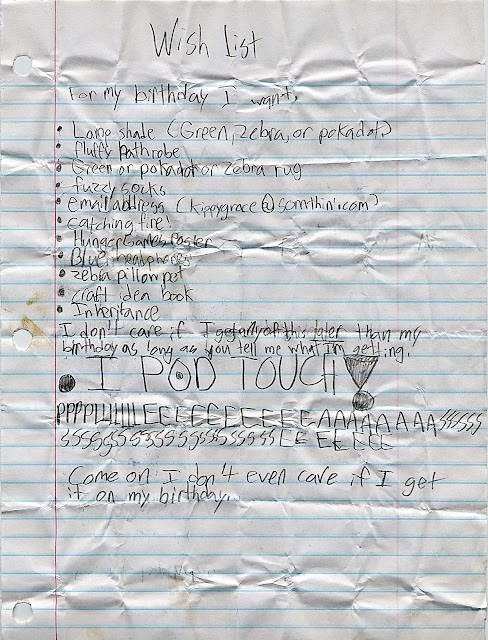 Wish List
For my birthday I want,
• Lamp shade (Green, zebra, or pokadot)
• fluffy bathrobe
• Green or pokadot or zebra rug
• fuzzy socks
• email address (kippygrace@somthin'.com)
• catching fire!
• Hunger Games Poster
• Blue headphones
• zebra pillow pet
• craft idea book
• Inheritance
I don't care if I get any of this later than my
birthday as long as you tell me what I'm getting.
• I POD TOUCH!
PPPPLLLLLLEEEEEEEEEEEAAAAAAAASSSSSS
SSSSSSSSSSSSSSSSSSSEEEEEEE
Come on I don't even care if I get
it on my birthday.